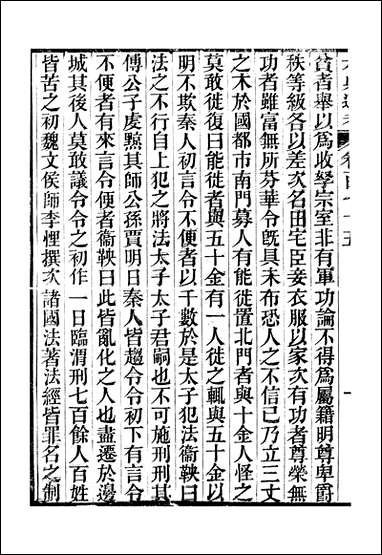 貧者舉以爲收孥宗室非有軍功論不得爲屬籍明尊卑爵
秩等級各以差次名田宅臣妾衣服以家次有功者尊榮無
功者雖富無所芬華令既具未布恐人之不信已乃立三丈
之木於國都市南門募人有能徙置北門者與十金人怪之
莫敢徙復曰能徙者與五十金有一人徙之輒與五十金以
明不欺秦人初言令不便者以千數於是太子犯法衞鞅曰
法之不行自上犯之將法太子太子君嗣也不可施刑刑其
傅公子虔黥其師公孫賈明日秦人皆趨令令初下有言令
不便者有來言令便者衞鞅曰此皆亂化之人也盡遷於邊
城其後人莫敢議令令之初作一日臨渭刑七百餘人百姓
皆苦之初魏文侯師李悝撰次諸國法著法經皆罪名之制